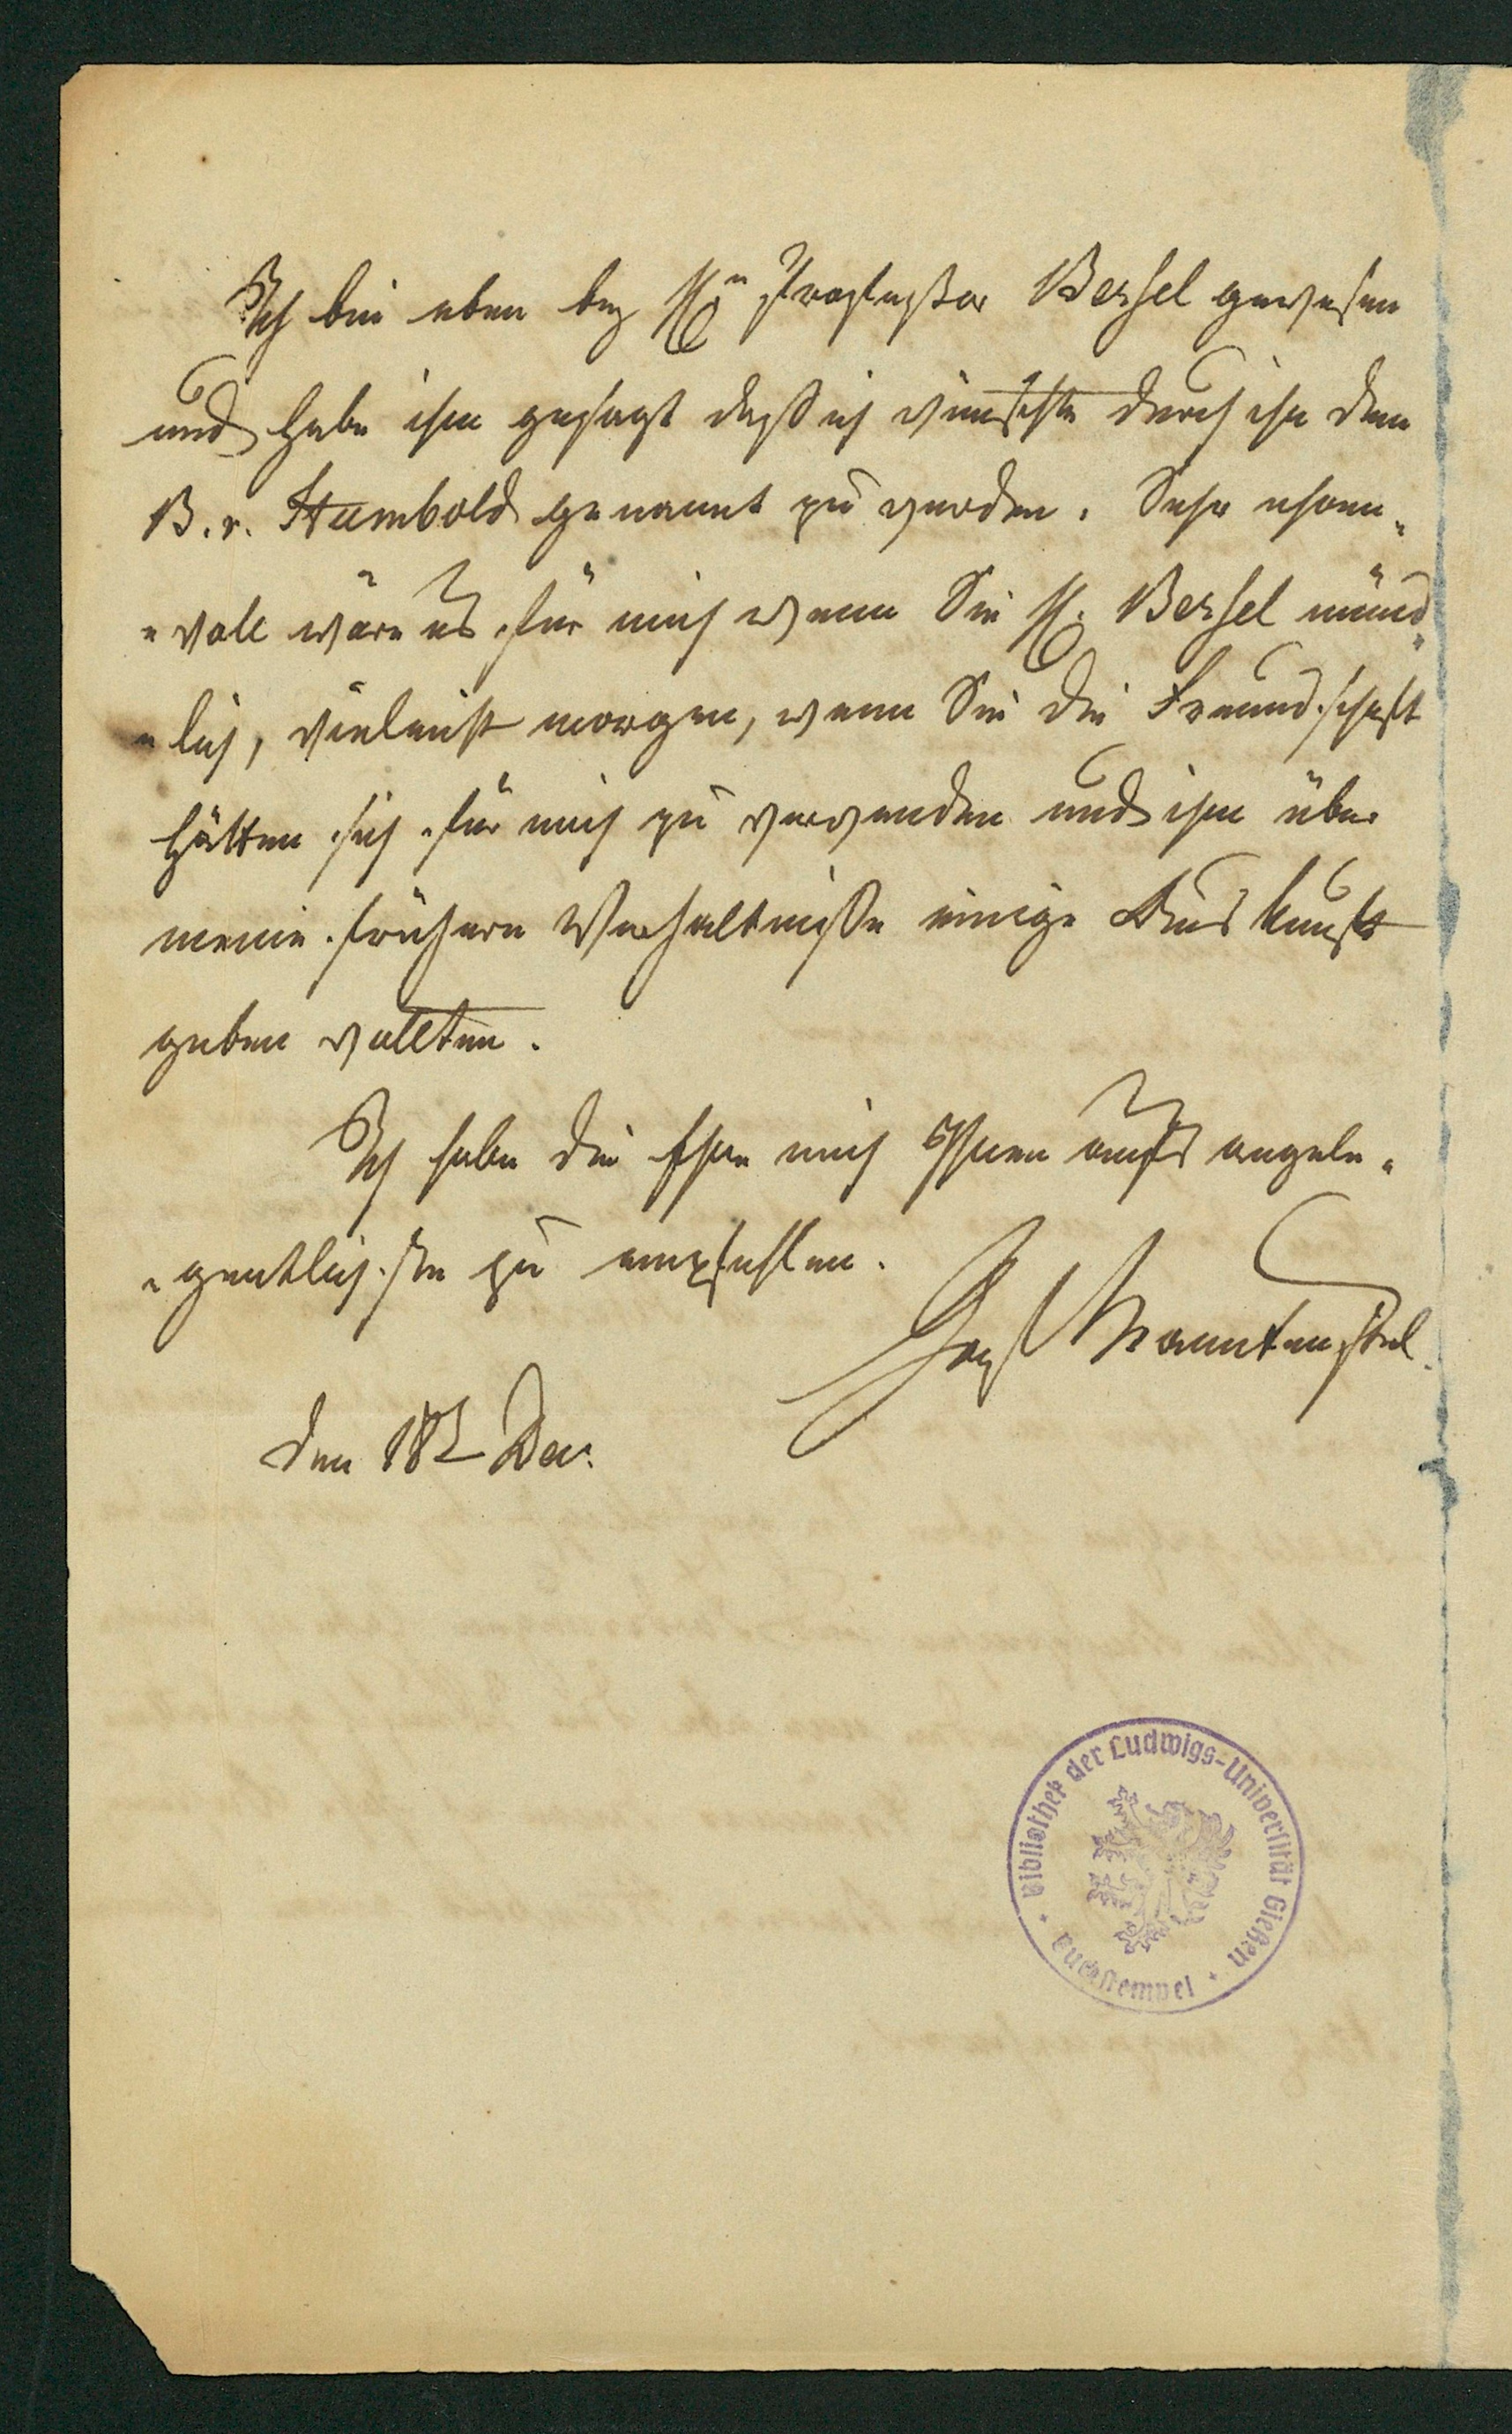 Ich bin eben bey Hn Professor Bessel gewesen
und habe ihm gesagt daß ich wünschte durch ihn dem
B. v. Humbold genannt zu werden. Sehr ehren„
„voll wäre es für mich wenn Sie H. Bessel münd„
„lich, vieleicht morgen, wenn Sie die Freundschaft
hätten sich für mich zu verwenden und ihm über
meine frühern Verhältniße einige Auskunft
geben wollten.
Ich habe die Ehre mich Ihnen aufs angele„
„gentlichste zu empfehlen.
den 18t
Bibliothek der Ludwigs-Universität Gießen
Buchstempel